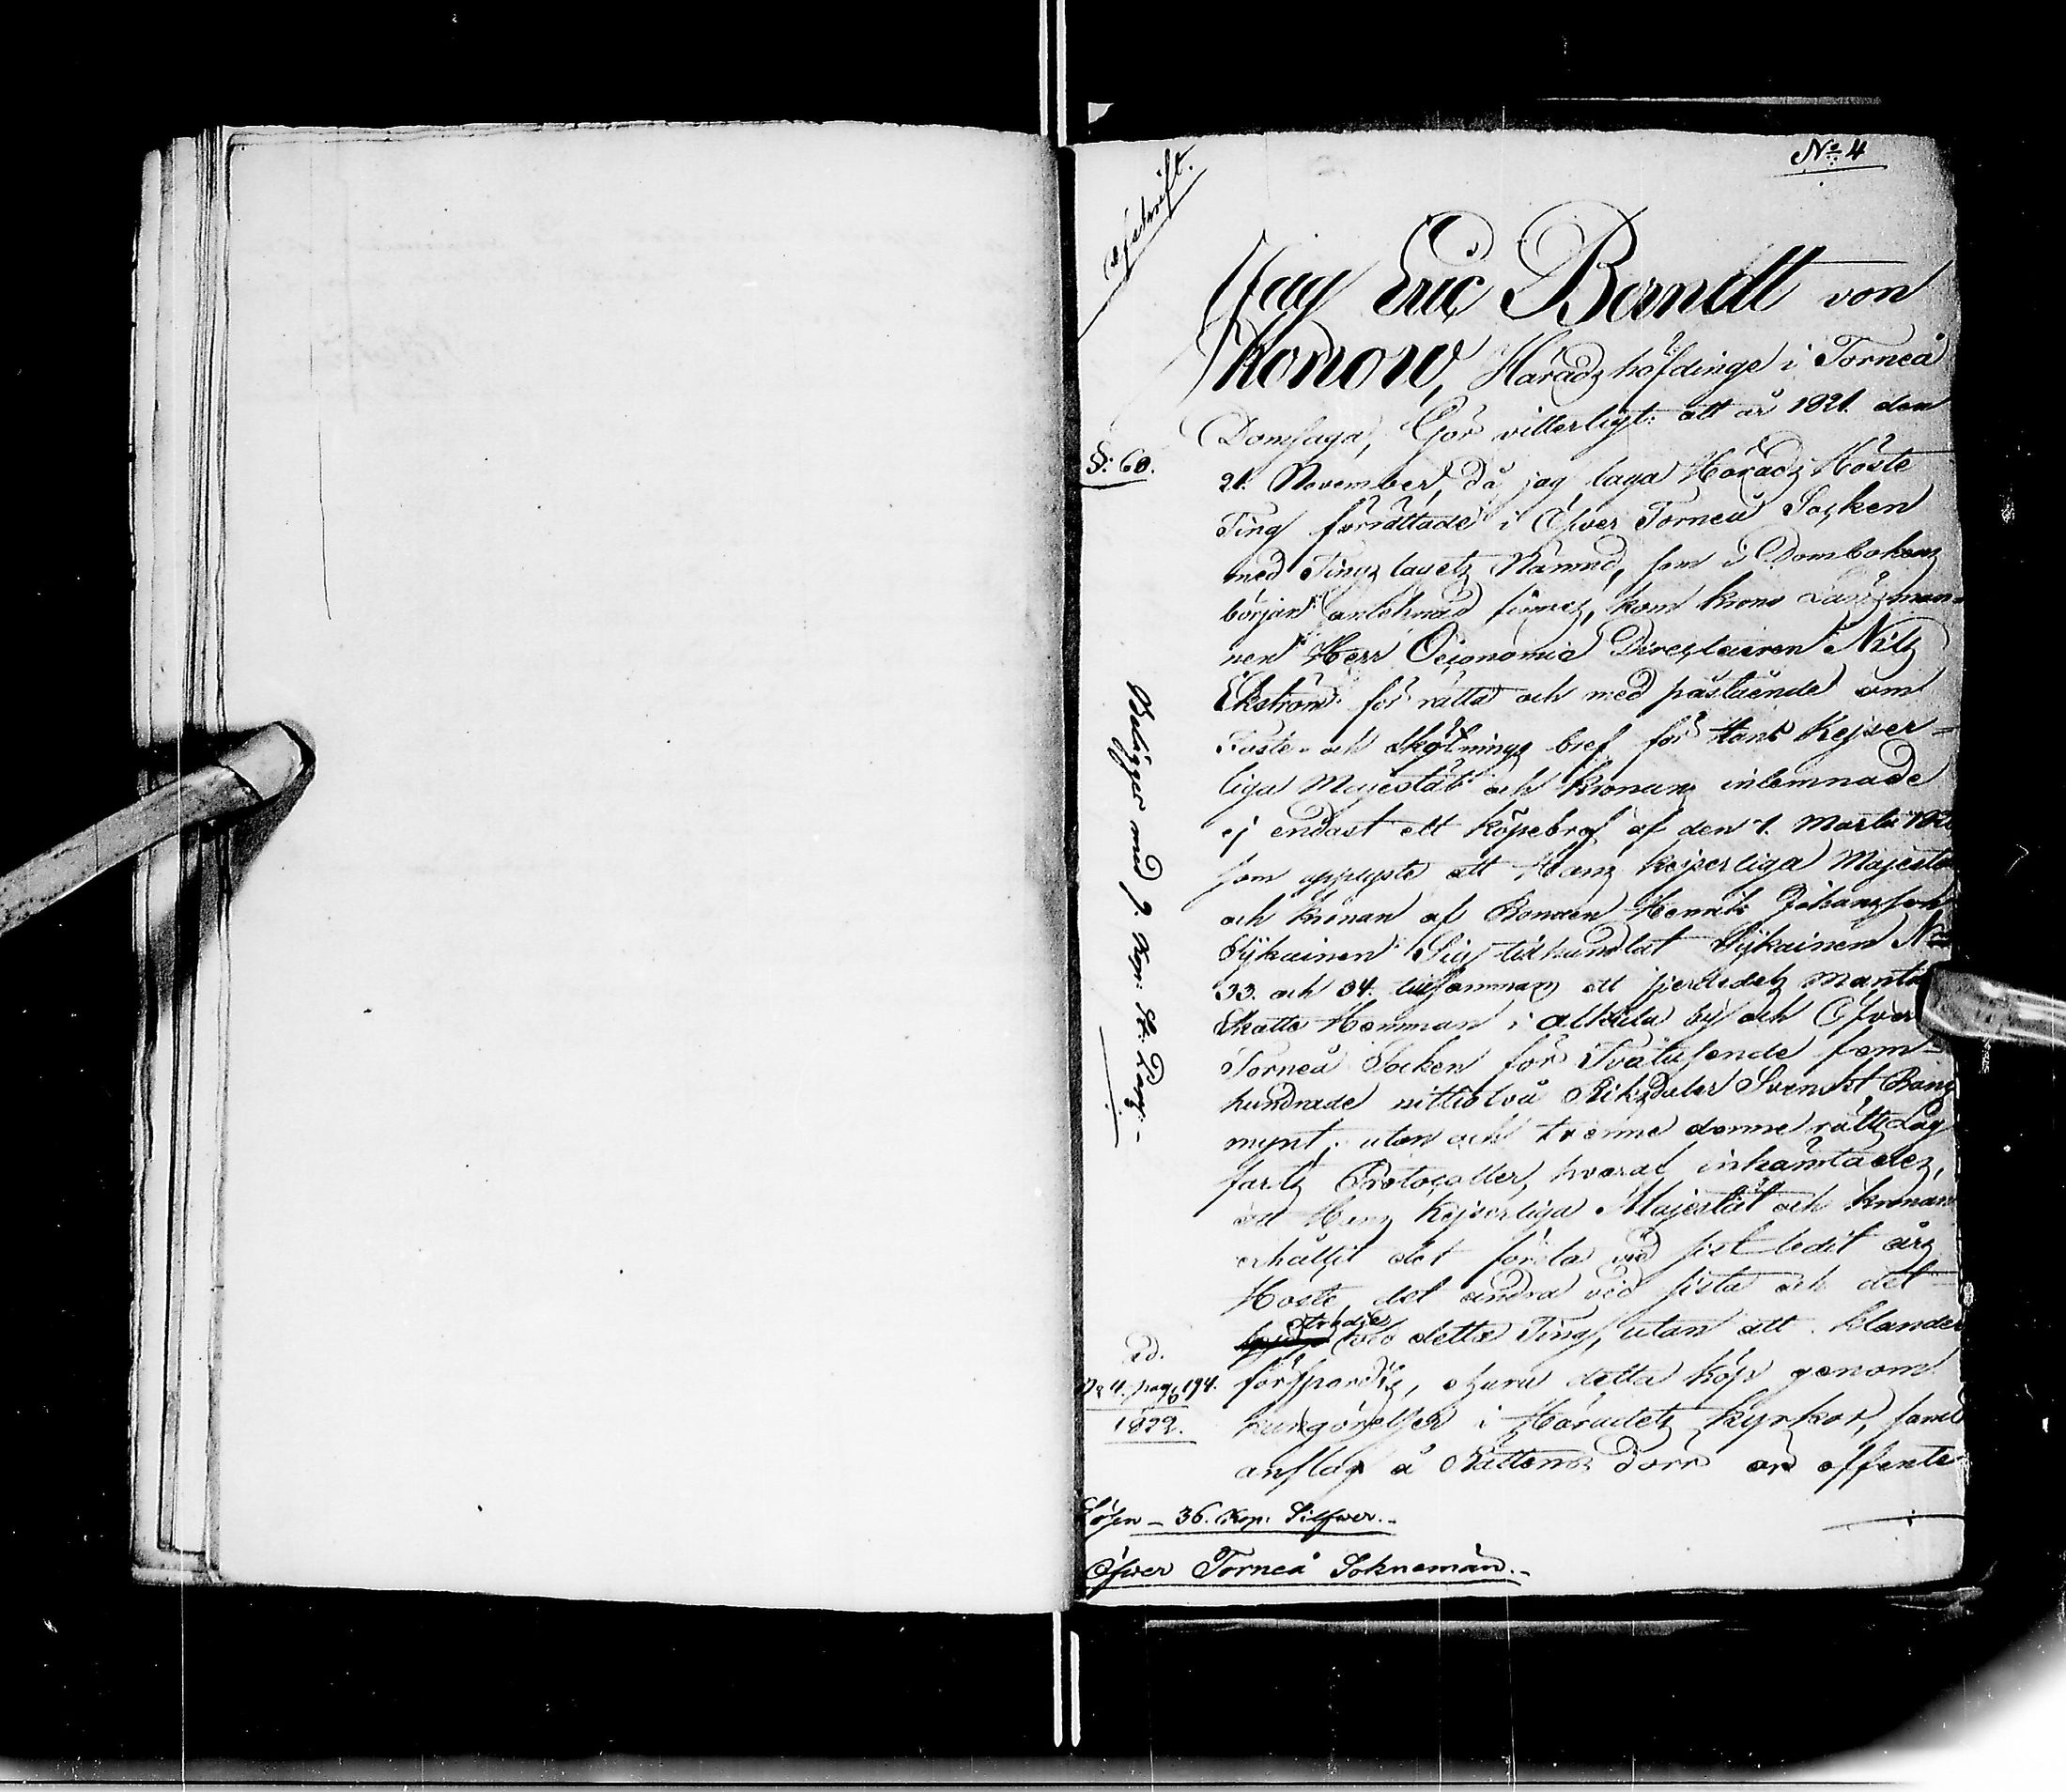 No 4
Afskrift.
Jag Eric Berndt von
Konow, Häradz höfdinge i Torneå
Domsaga, Gör vitterligt: att år 1821. den
§: 60.
21. November, då jag laga Häradz Höste
Ting förrättade i Öfver Torneå Socken
med Tingz lagetz Nämnd, som i Dombokenz
början antecknad finnez, kom Krono Länzman-
nen Herr Oeconomie Directeuren Nilz
Ekström för rätta och med påstående om
Faste- och Skötningz bref för Hans Kejser-
liga Majestät och Kronanz inlemnade
ej endast ett köpebref af den 1. Martii 182
som upplyste att Hanz Kejserliga Majestät
och Kronan af Bonden Henrik Johanzson
Sÿkäinen Sig tilhandlat Sÿkäinen No
33. och 34. tillsamman ett fjerdedelz Mantal
Skatte Hemman i Alkula by och Öfver
Torneå Socken för Tvåtusende fem-
hundrade nittiotvå Riksdaler Svenskt Banz
mynt, utan och trenne denne rätts Lag
fartz Protocoller, hvaraf inhämtadez,
att Hanz Kejserliga Majestät och Kronan
erhållit det första vid sist ledit årz
Höste, det andra vid sista och det
tridje
wid detta Ting, utan att klander
förspordz, ehuru detta köp genom
kungörelser i Häradetz kyrkor, samt
anslag å Rättens dörr är offente-
Belägges med 9. Kop: St: Pap: -
ad.
No 4. pag 194.
1822.
Lösen - 36. Kop. Silfwer.-
Öfver Torneå Soknemän.-